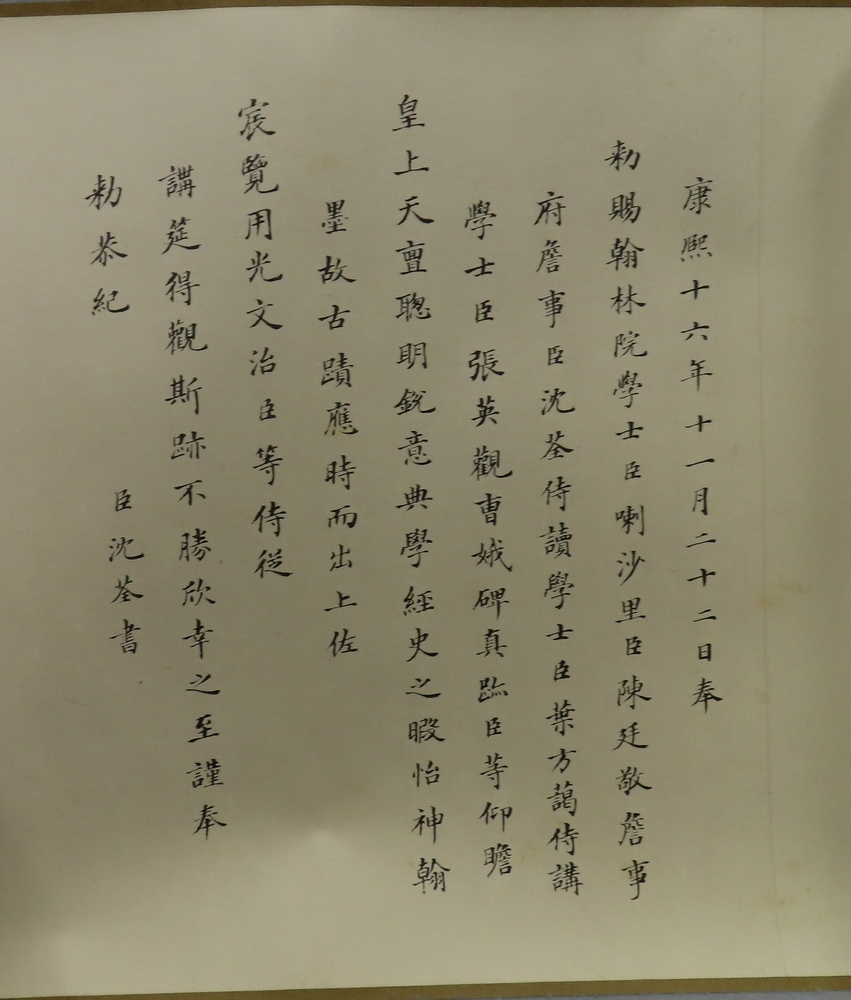 康熙十六年十一月二十二日奉
勅賜翰林院學士臣喇沙里臣陳廷敬詹事
府詹事臣沈荃侍讀學士臣葉方藹侍講
學士臣張英觀曹娥碑真跡臣等仰瞻
皇上天亶聰明銳意典學經史之暇怡神翰
墨故古蹟應時而出上佐
宸覽用光文治臣等侍從
講筵得觀斯跡不勝欣幸之至謹奉
勅恭紀
臣沈荃書